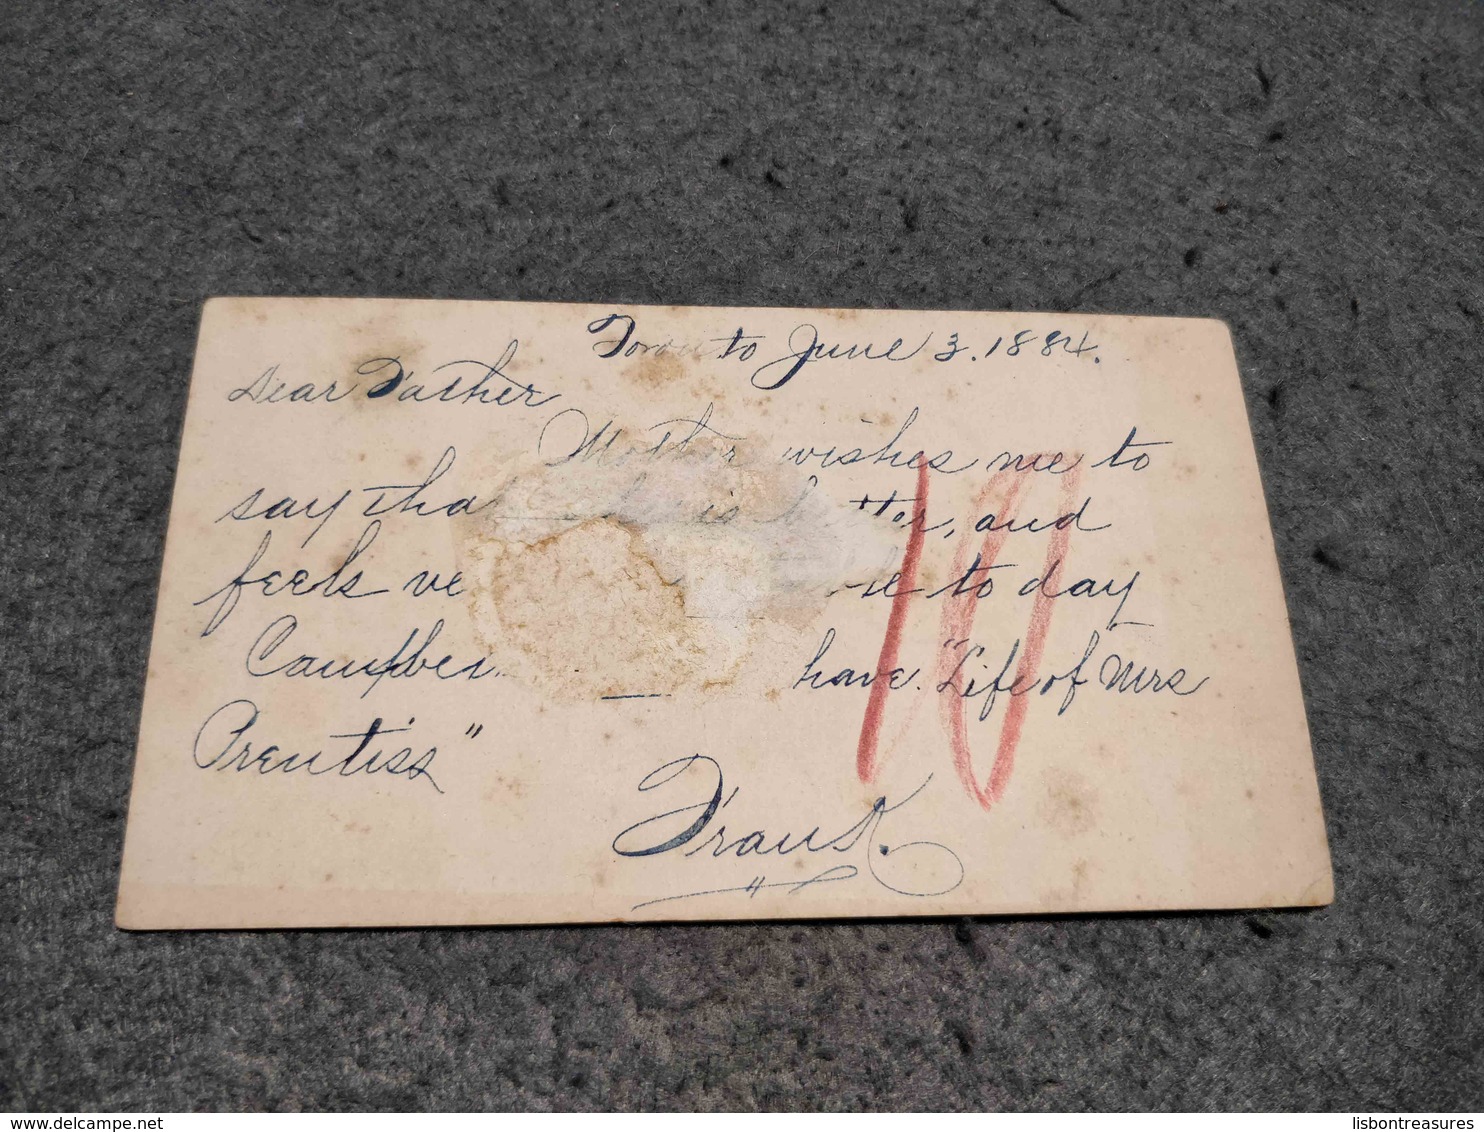 Toronto June 3. 1884.
Dear Father
Mother wishes me to
say that she is better, and
feels to day
have "Life of Mrs
Prentiss"
Frank.
10
delcampe.net
lisbontreasures